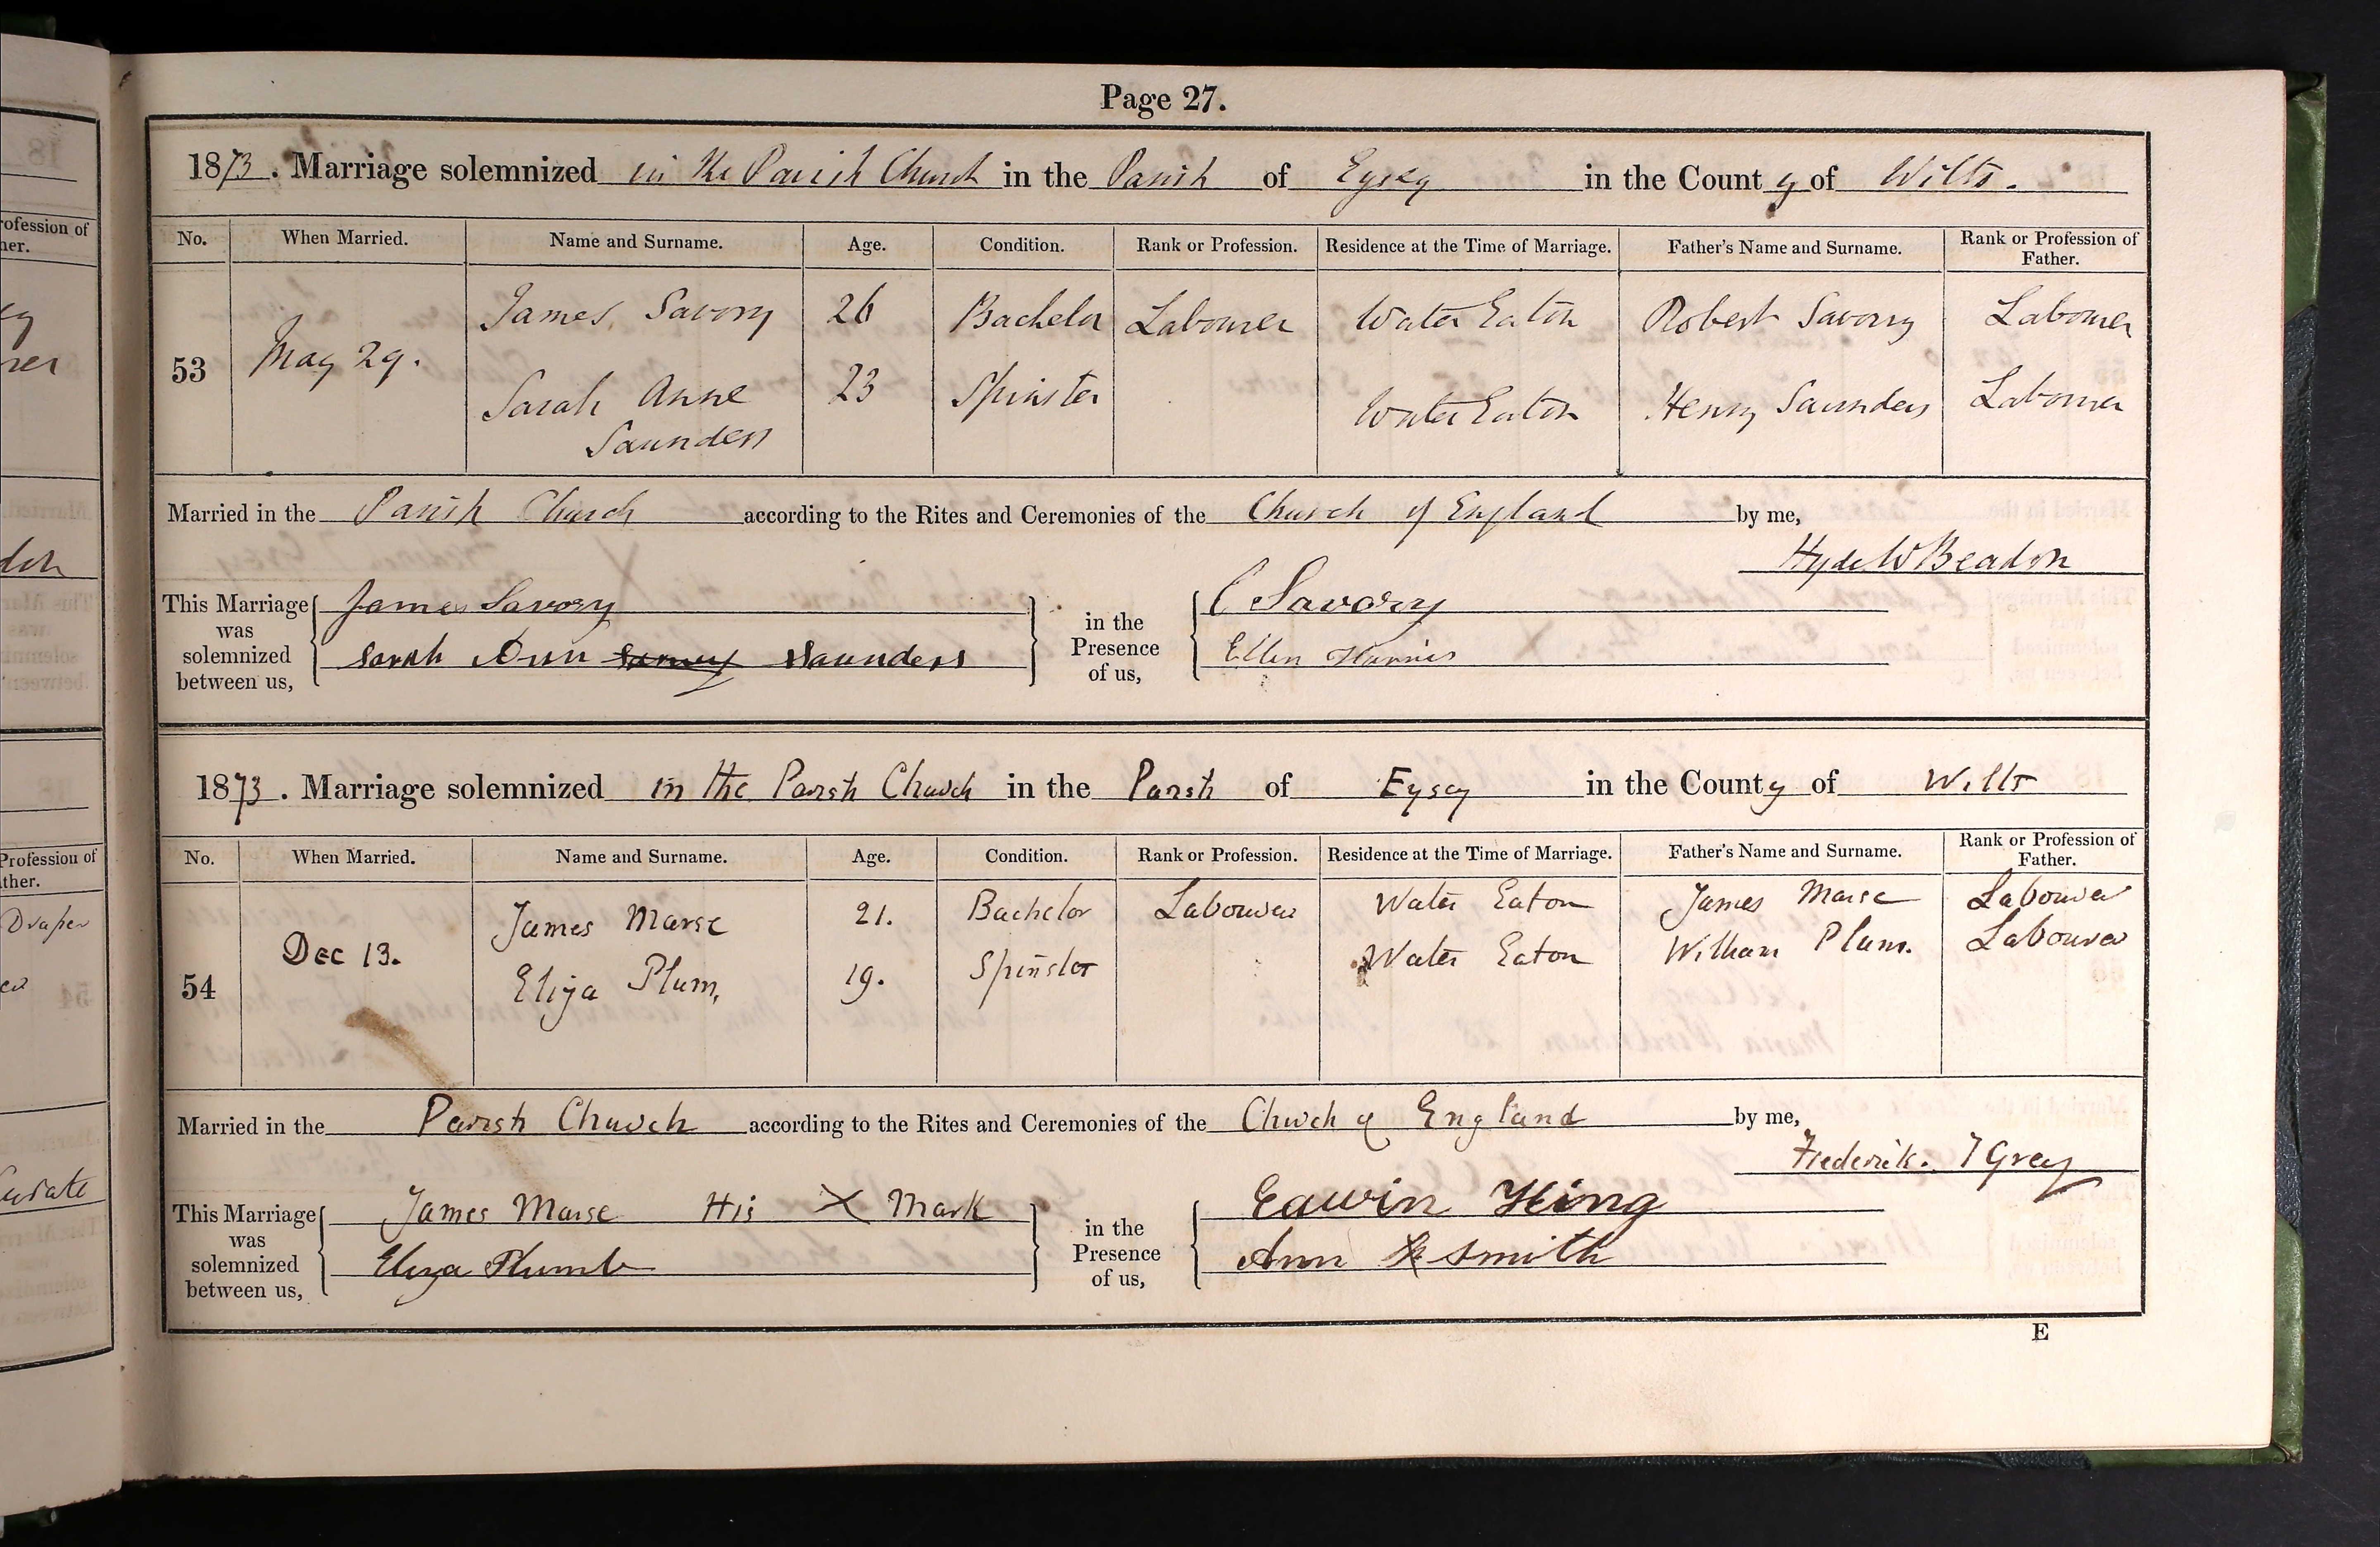 Page 27.
1873. Marriage solemnized in the Parish Church in the Parish of Eysey in the County of Wilts.
No. When Married. Name and Surname. Age. Condition. Rank or Profession. Residence at the Time of Marriage. Father's Name and Surname. Rank or Profession of Father.
53 May 29. James Savory 26 Bachelor Labourer Water Eaton Robert Savory Labourer
Sarah Anne Saunders 23 Spinster Water Eaton Henry Saunders Labourer
Married in the Parish Church according to the Rites and Ceremonies of the Church of England by me,
Hyde W Beadon
This Marriage was solemnized between us, James Savory
Sarah Ann Savory Saunders
in the Presence of us, C Savory
Ellen Harris
1873. Marriage solemnized in the Parish Church in the Parish of Eysey in the County of Wilts
No. When Married. Name and Surname. Age. Condition. Rank or Profession. Residence at the Time of Marriage. Father's Name and Surname. Rank or Profession of Father.
54 Dec 13. James Marse 21. Bachelor Labourer Water Eaton James Marse Labourer
Eliza Plum, 19. Spinster Water Eaton William Plum. Labourer
Married in the Parish Church according to the Rites and Ceremonies of the Church of England by me,
Frederick. T Grey
This Marriage was solemnized between us, James Marse His X Mark
Eliza Plumb
in the Presence of us, Edwin King
Ann Smith
E
rofession of
her.
Profession of
ther.
Draper
urate